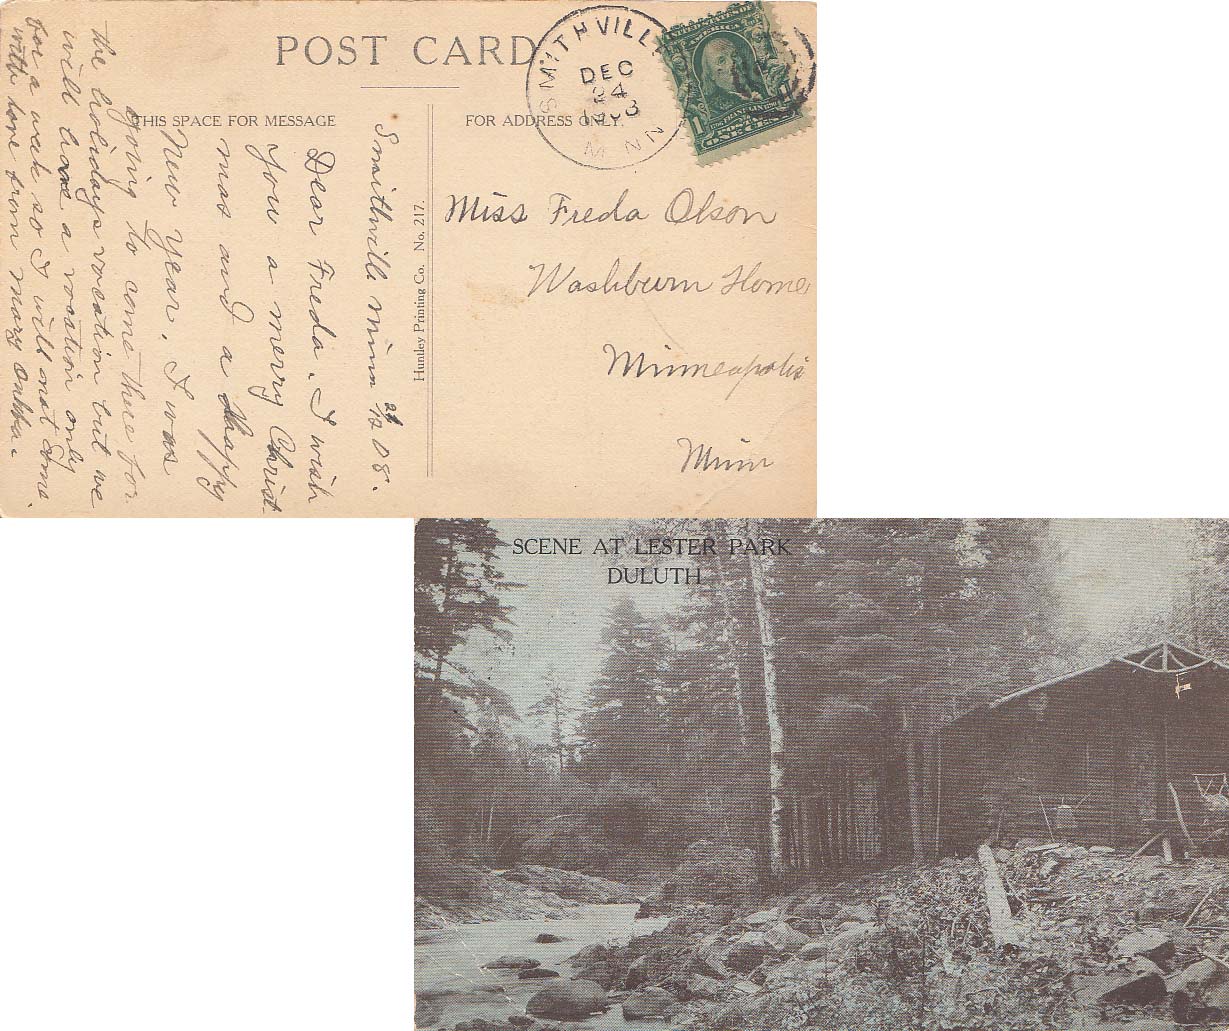 POST CARD
THIS SPACE FOR MESSAGE
FOR ADDRESS ONLY.
SMITHVILLE
DEC
24
1908
MINN
UNITED STATES OF
AMERICA
1
FRANKLIN
ONE CENT
Smithville Minn 12/24 08.
Dear Freda. I wish
You a merry Christ
mas and a Happy
New Year. I was
going to come there for
the holidays vocation but we
will have a vocation only
for a week so I will not come.
with love from Mary
Huntley Printing Co. No. 217.
Miss Freda Olson
Washburn Home
Minneapolis
Minn
SCENE AT LESTER PARK
DULUTH